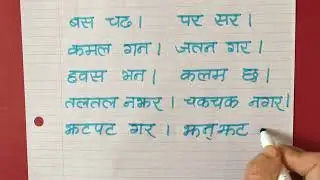 बस चढ । पर सर ।
कमल गन । जतन गर ।
हवस भन । कलम छ ।
तलतल नझर । चकचक नगर ।
झटपट गर । झन्झट